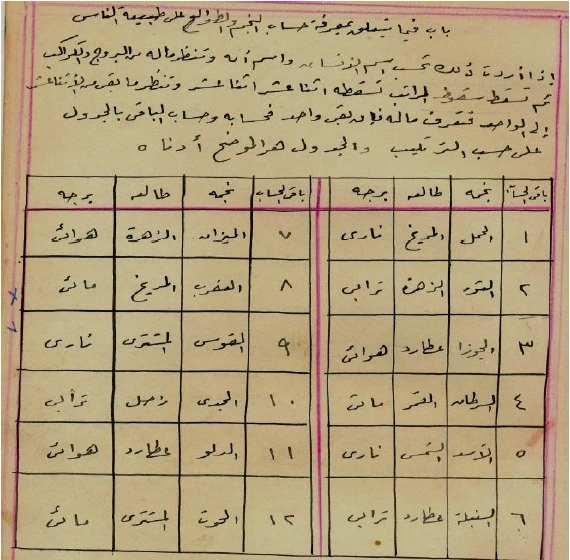 باب فيما يتعلق بمعرفة حساب النجم والطوالع على طبيعة الناس
إذا أردت ذلك تحسب اسم الإنسان واسم أمه وتنظر ماله من البروج والكواكب
ثم تسقط سقوط المراتب تسقطه اثنا عشر اثنا عشر وتنظر ما بقي من الاثنا عشر
إلى الواحد فتعرف ماله فإن بقي واحد فحسابه وحساب الباقي بالجدول
على حسب الترتيب والجدول هو الموضح أدناه
باقي الحساب نجمه طالعه برجه باقي الحساب نجمه طالعه برجه
١ الحمل المريخ ناري ٧ الميزان الزهرة هوائي
٢ الثور الزهرة ترابي ٨ العقرب المريخ مائي
٣ الجوزا عطارد هوائي ٩ القوس المشترى ناري
٤ السرطان القمر مائي ١٠ الجدي زحل ترابي
٥ الأسد الشمس ناري ١١ الدلو عطارد هوائي
٦ السنبلة عطارد ترابي ١٢ الحوت المشترى مائي